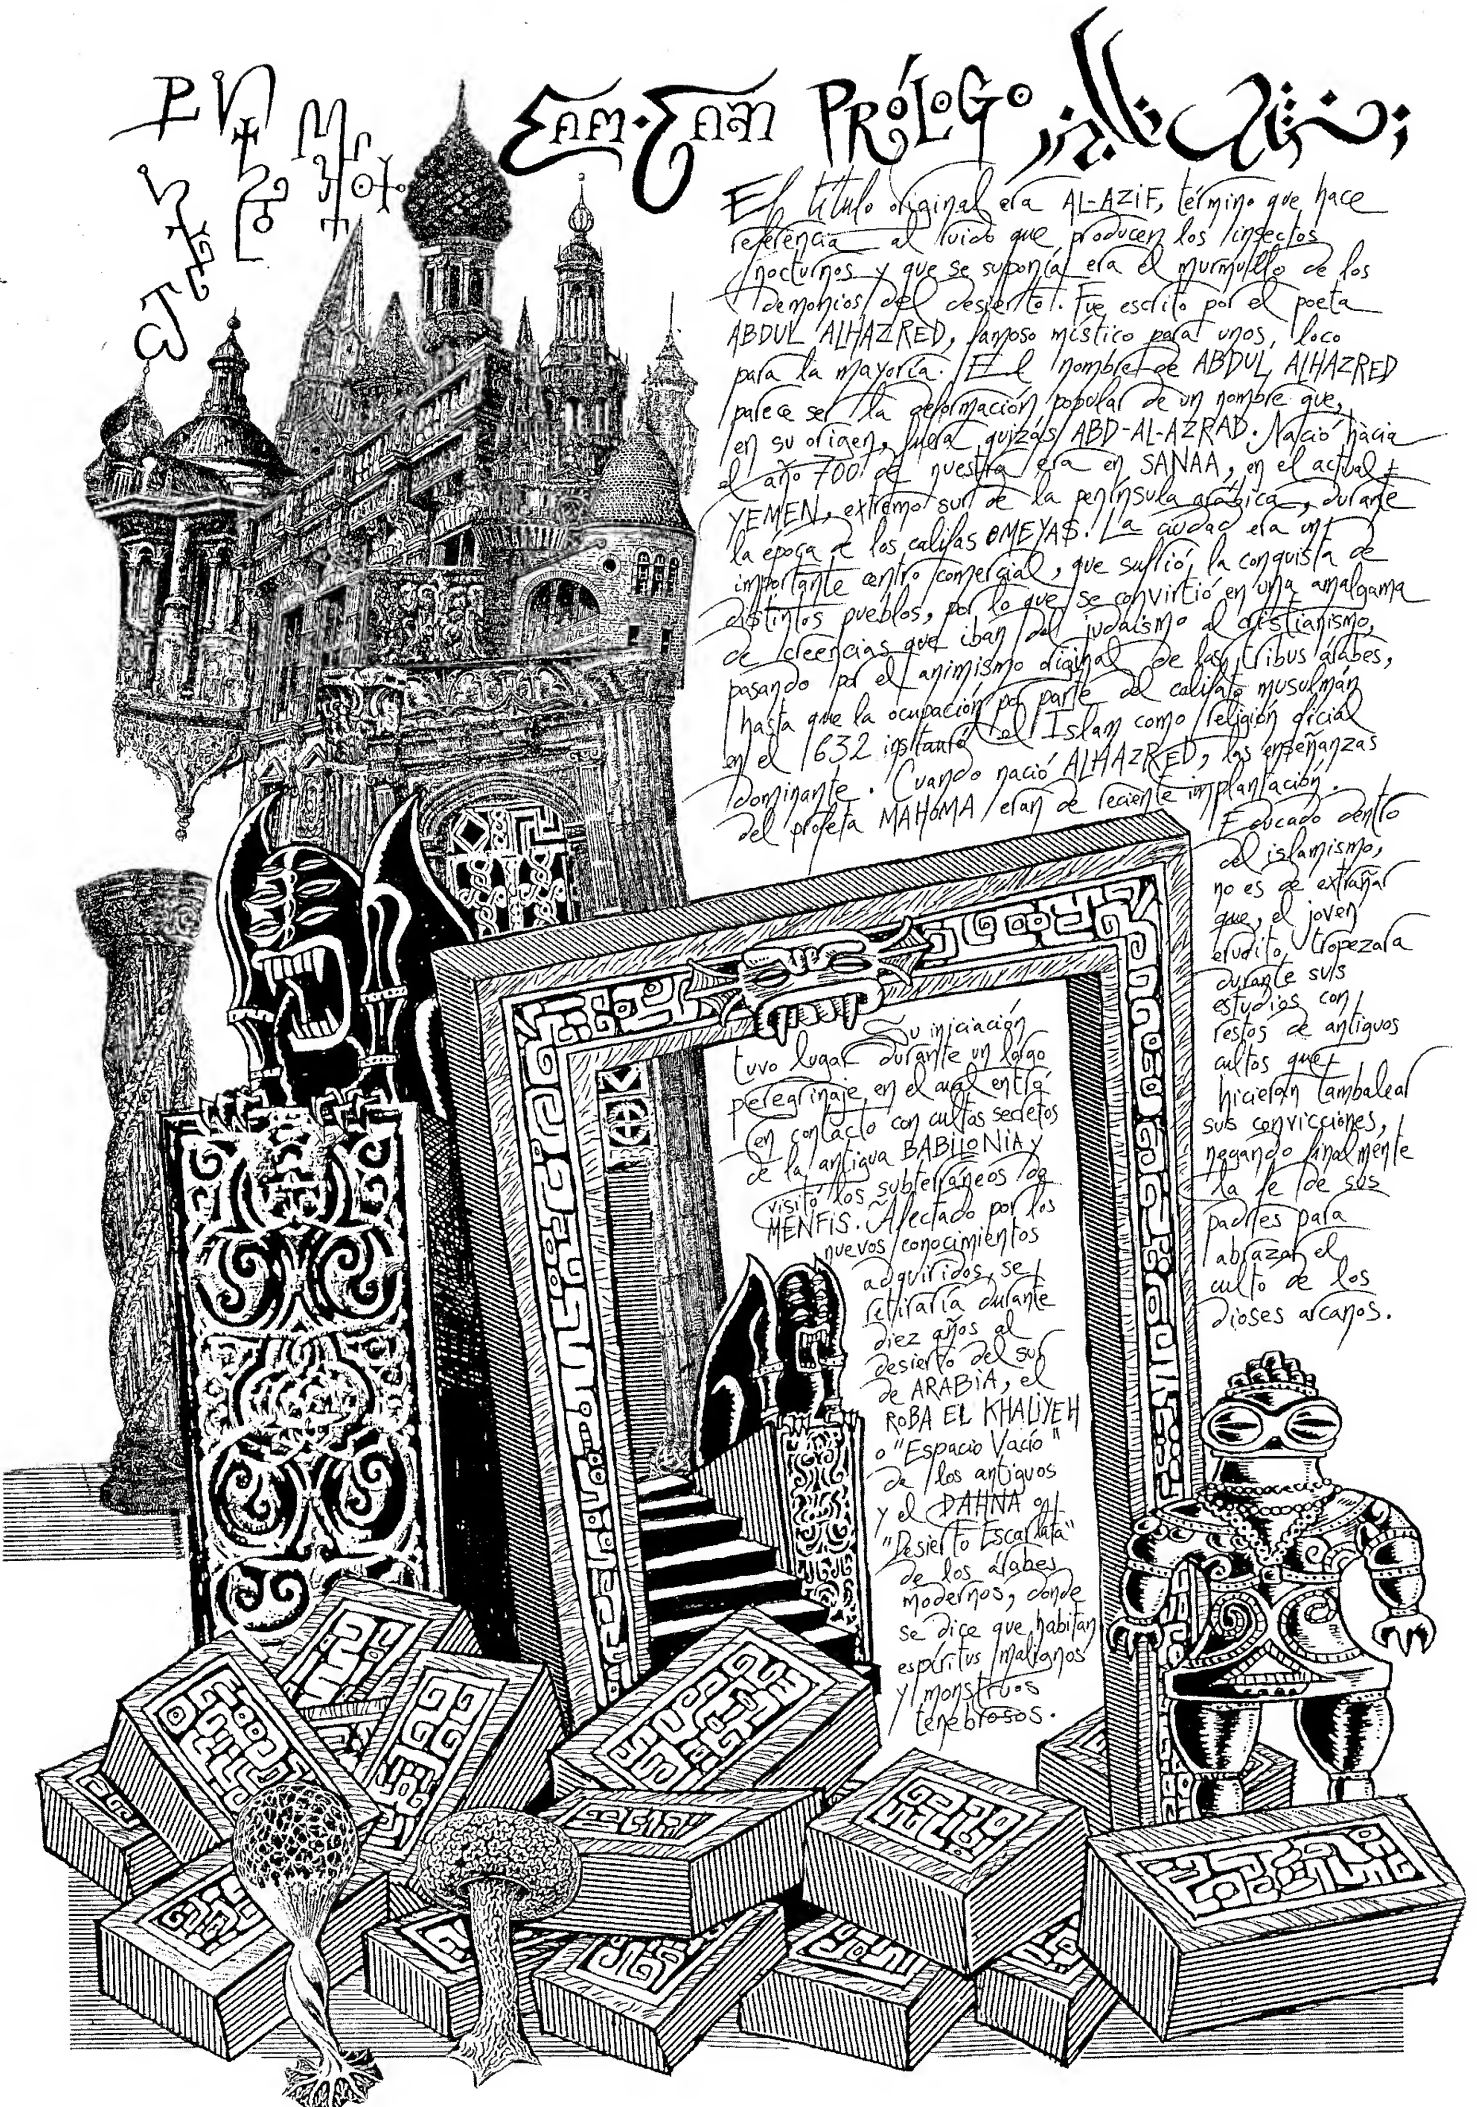 PRÓLOGO
El título original era AL-AZIF, término que hace
referencia al ruido que producen los insectos
nocturnos y que se suponía era el murmullo de los
demonios del desierto. Fue escrito por el poeta
ABDUL ALHAZRED, famoso místico para unos, loco
para la mayoría. El nombre de ABDUL ALHAZRED
parece ser la deformación popular de un nombre que,
en su origen, fuera quizás ABD-AL-AZRAD. Nació hacia
el año 700 de nuestra era en SANAA, en el actual
YEMEN, extremo sur de la península arábica, durante
la época de los califas OMEYAS. La ciudad era un
importante centro comercial, que sufrió la conquista de
distintos pueblos, por lo que se convirtió en una amalgama
de creencias que iban del judaísmo al cristianismo,
pasando por el animismo original de las tribus árabes,
hasta que la ocupación por parte del califato musulmán
en el 1632 instauró el Islam como religión oficial
dominante. Cuando nació ALHAZRED, las enseñanzas
del profeta MAHOMA eran de reciente implantación.
Educado dentro
del islamismo,
no es de extrañar
que, el joven
erudito, tropezara
durante sus
estudios con
restos de antiguos
cultos que
hicieran tambalear
sus convicciones,
negando finalmente
la fe de sus
padres para
abrazar el
culto de los
dioses arcanos.
Su iniciación
tuvo lugar durante un largo
peregrinaje, en el cual entró
en contacto con cultos secretos
de la antigua BABILONIA y
visitó los subterráneos de
MENFIS. Afectado por los
nuevos conocimientos
adquiridos, se
retiraría durante
diez años al
desierto del sur
de ARABIA, el
ROBA EL KHALIYEH
o "Espacio Vacío"
de los antiguos
y el DAHNA o
"Desierto Escarlata"
de los árabes
modernos, donde
se dice que habitan
espíritus malignos
y monstruos
tenebrosos.